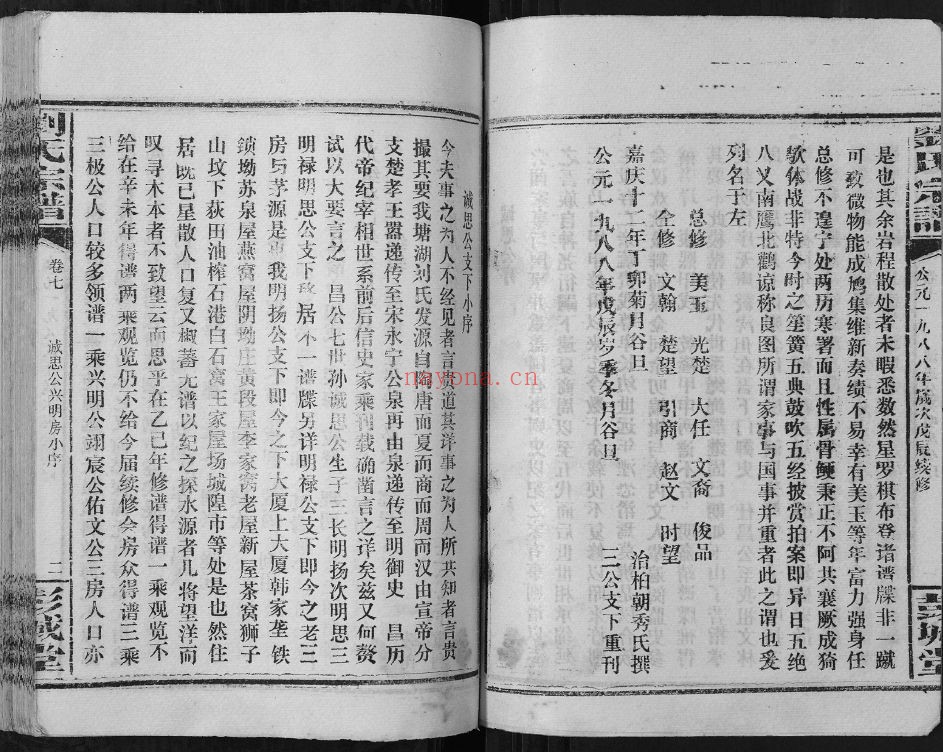 公元一九八八年歲次戊辰续修
彭城堂
是也其余岩程散处者未暇悉数然星罗棋布登诸谱牒非一蹴
可致微物能成鸠集维新奏绩不易幸有美玉等年富力强身任
总修不遑宁处两历寒署而且性属骨鲠秉正不阿共襄厥成猗
欤休战非特今时之笙簧五典鼓吹五经披赏拍案即异日五绝
八叉南鹰北鹳谅称良图所谓家事与国事并重者此之谓也爰
列名于左
总修 美玉 光楚 大任 文裔 俊品
仝修 文翰 楚望 引商 赵文 时望
嘉庆十二年丁卯菊月谷旦 治柏朝秀氏撰
公元一九八八年戊辰岁季冬月谷旦 三公支下重刊
诚思公支下小序
今夫事之为人不经见者言贵道其详事之为人所共知者言贵
撮其要我塘湖刘氏发源自陶唐而夏而商而周而汉由宣帝分
支楚孝王嚣递传至宋永宁公泉再由泉递传至明御史 昌历
代帝纪宰相世系前后信史家乘刊载确凿言之详矣兹又何赘
试以大要言之 昌公七世孙诚思公生子三长明扬次明思三
明禄明思公支下 居 不一谱牒另详明禄公支下即今之老三
房与茅源是 我明扬公支下即今之下大厦上大厦韩家垄铁
锁坳苏泉屋燕窝屋阴坳庄黄段屋李家 老屋新屋茶窝狮子
山坟下荻田油榨石港白石窝王家屋场城隍市等处是也然住
居既已星散人口复又椒蕃无谱以纪之探水源者儿将望洋而
叹寻木本者不致望云而思乎在乙巳年修谱得谱一乘观览不
给在辛未年得谱两乘观览仍不给今届续修会房众得谱三乘
三极公人口较多领谱一乘兴明公翊宸公佑文公三房人口亦
劉氏宗譜
卷七
诚思公兴明房小序
二
彭城堂
nayona.cn